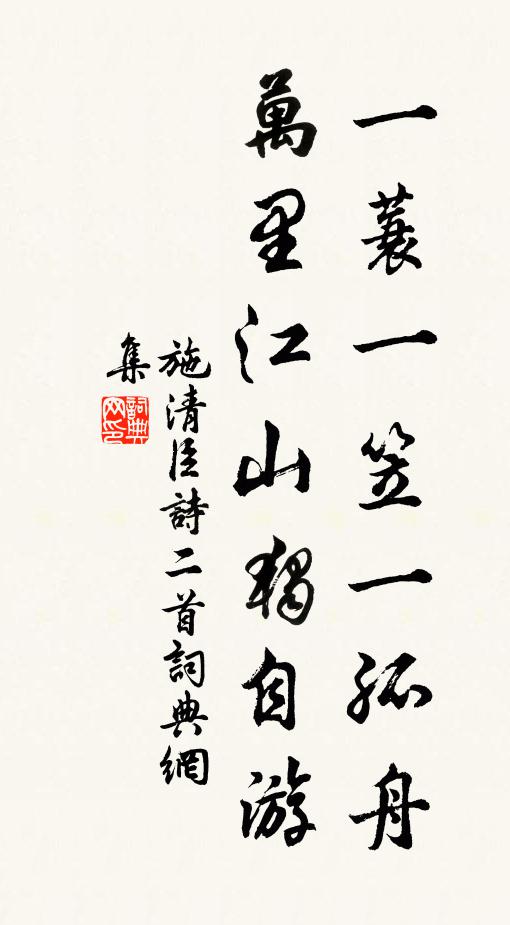 一蓑一笠一孤舟
萬里江山獨自游
施清臣詩二首詞典網
集
詞典
网印